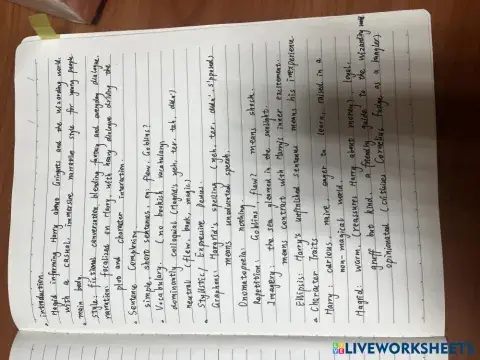 • introduction
Hagrid informing Harry about Gringotts and the wizarding world
with a casual, immersive narrative style for young people
• main body
style: fictional conversation, blending fantasy and everyday dialogue
narration: focalised on Harry, with heavy dialogue driving the
plot and character interaction.
• Sentence Complexity
simple, short sentences. eg: flew? Goblins?
• Vocabulary: (no bookish vocabulary
dominantly colloquial (Hagrid's yeh, ter, tah,
neutral (flew, bank, magic)
• Stylistic / Expressive Devices
Graphons: Hargrid's spelling (yeh, ter,
means uneducated speech.
Onomatopoeia: nothing
Repetition: Goblins / flew? means shock.
Imagery: the sea gleamed in the sunlight.
means contrast with Harry's inner excitement.
Ellipsis: Harry's unfinished sentence means his inexperience
• Character traits
Harry: curious, naive, eager to learn, raised in a
non-magical world.
Hagrid: warm, (reassures Harry about money), loyal,
gruff but kind, a friendly guide to the wizarding
opinionated (criticizes Cornelius Fudge as a bungler).
LIVEWORKSHEETS